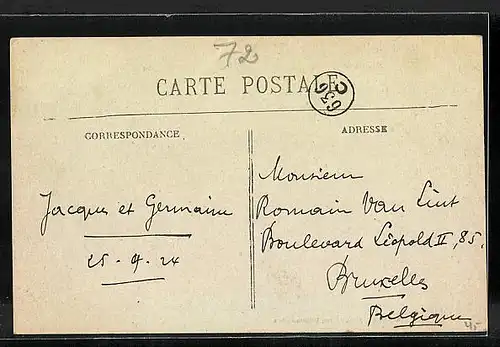 72
CARTE POSTALE
CORRESPONDANCE
ADRESSE
Jacques et Germaine
25-9-24
Monsieur
Romain Van Lint
Boulevard Léopold II, 85.
Bruxelles
Belgique